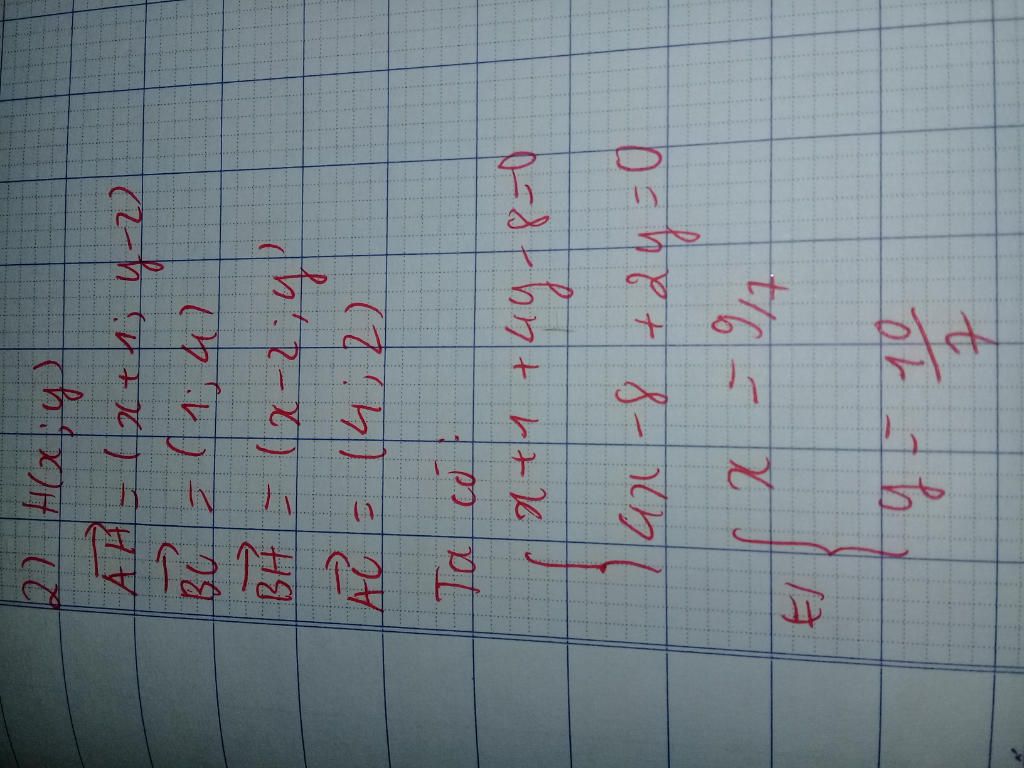 2) H(x;y)
AH = (x+1; y-2)
BC = (1; 4)
BH = (x-2; y)
AC = (4; 2)
Ta có:
{ x+1 + 4y - 8 = 0
4x - 8 + 2y = 0
E) { x = 9/7
y = 10/7